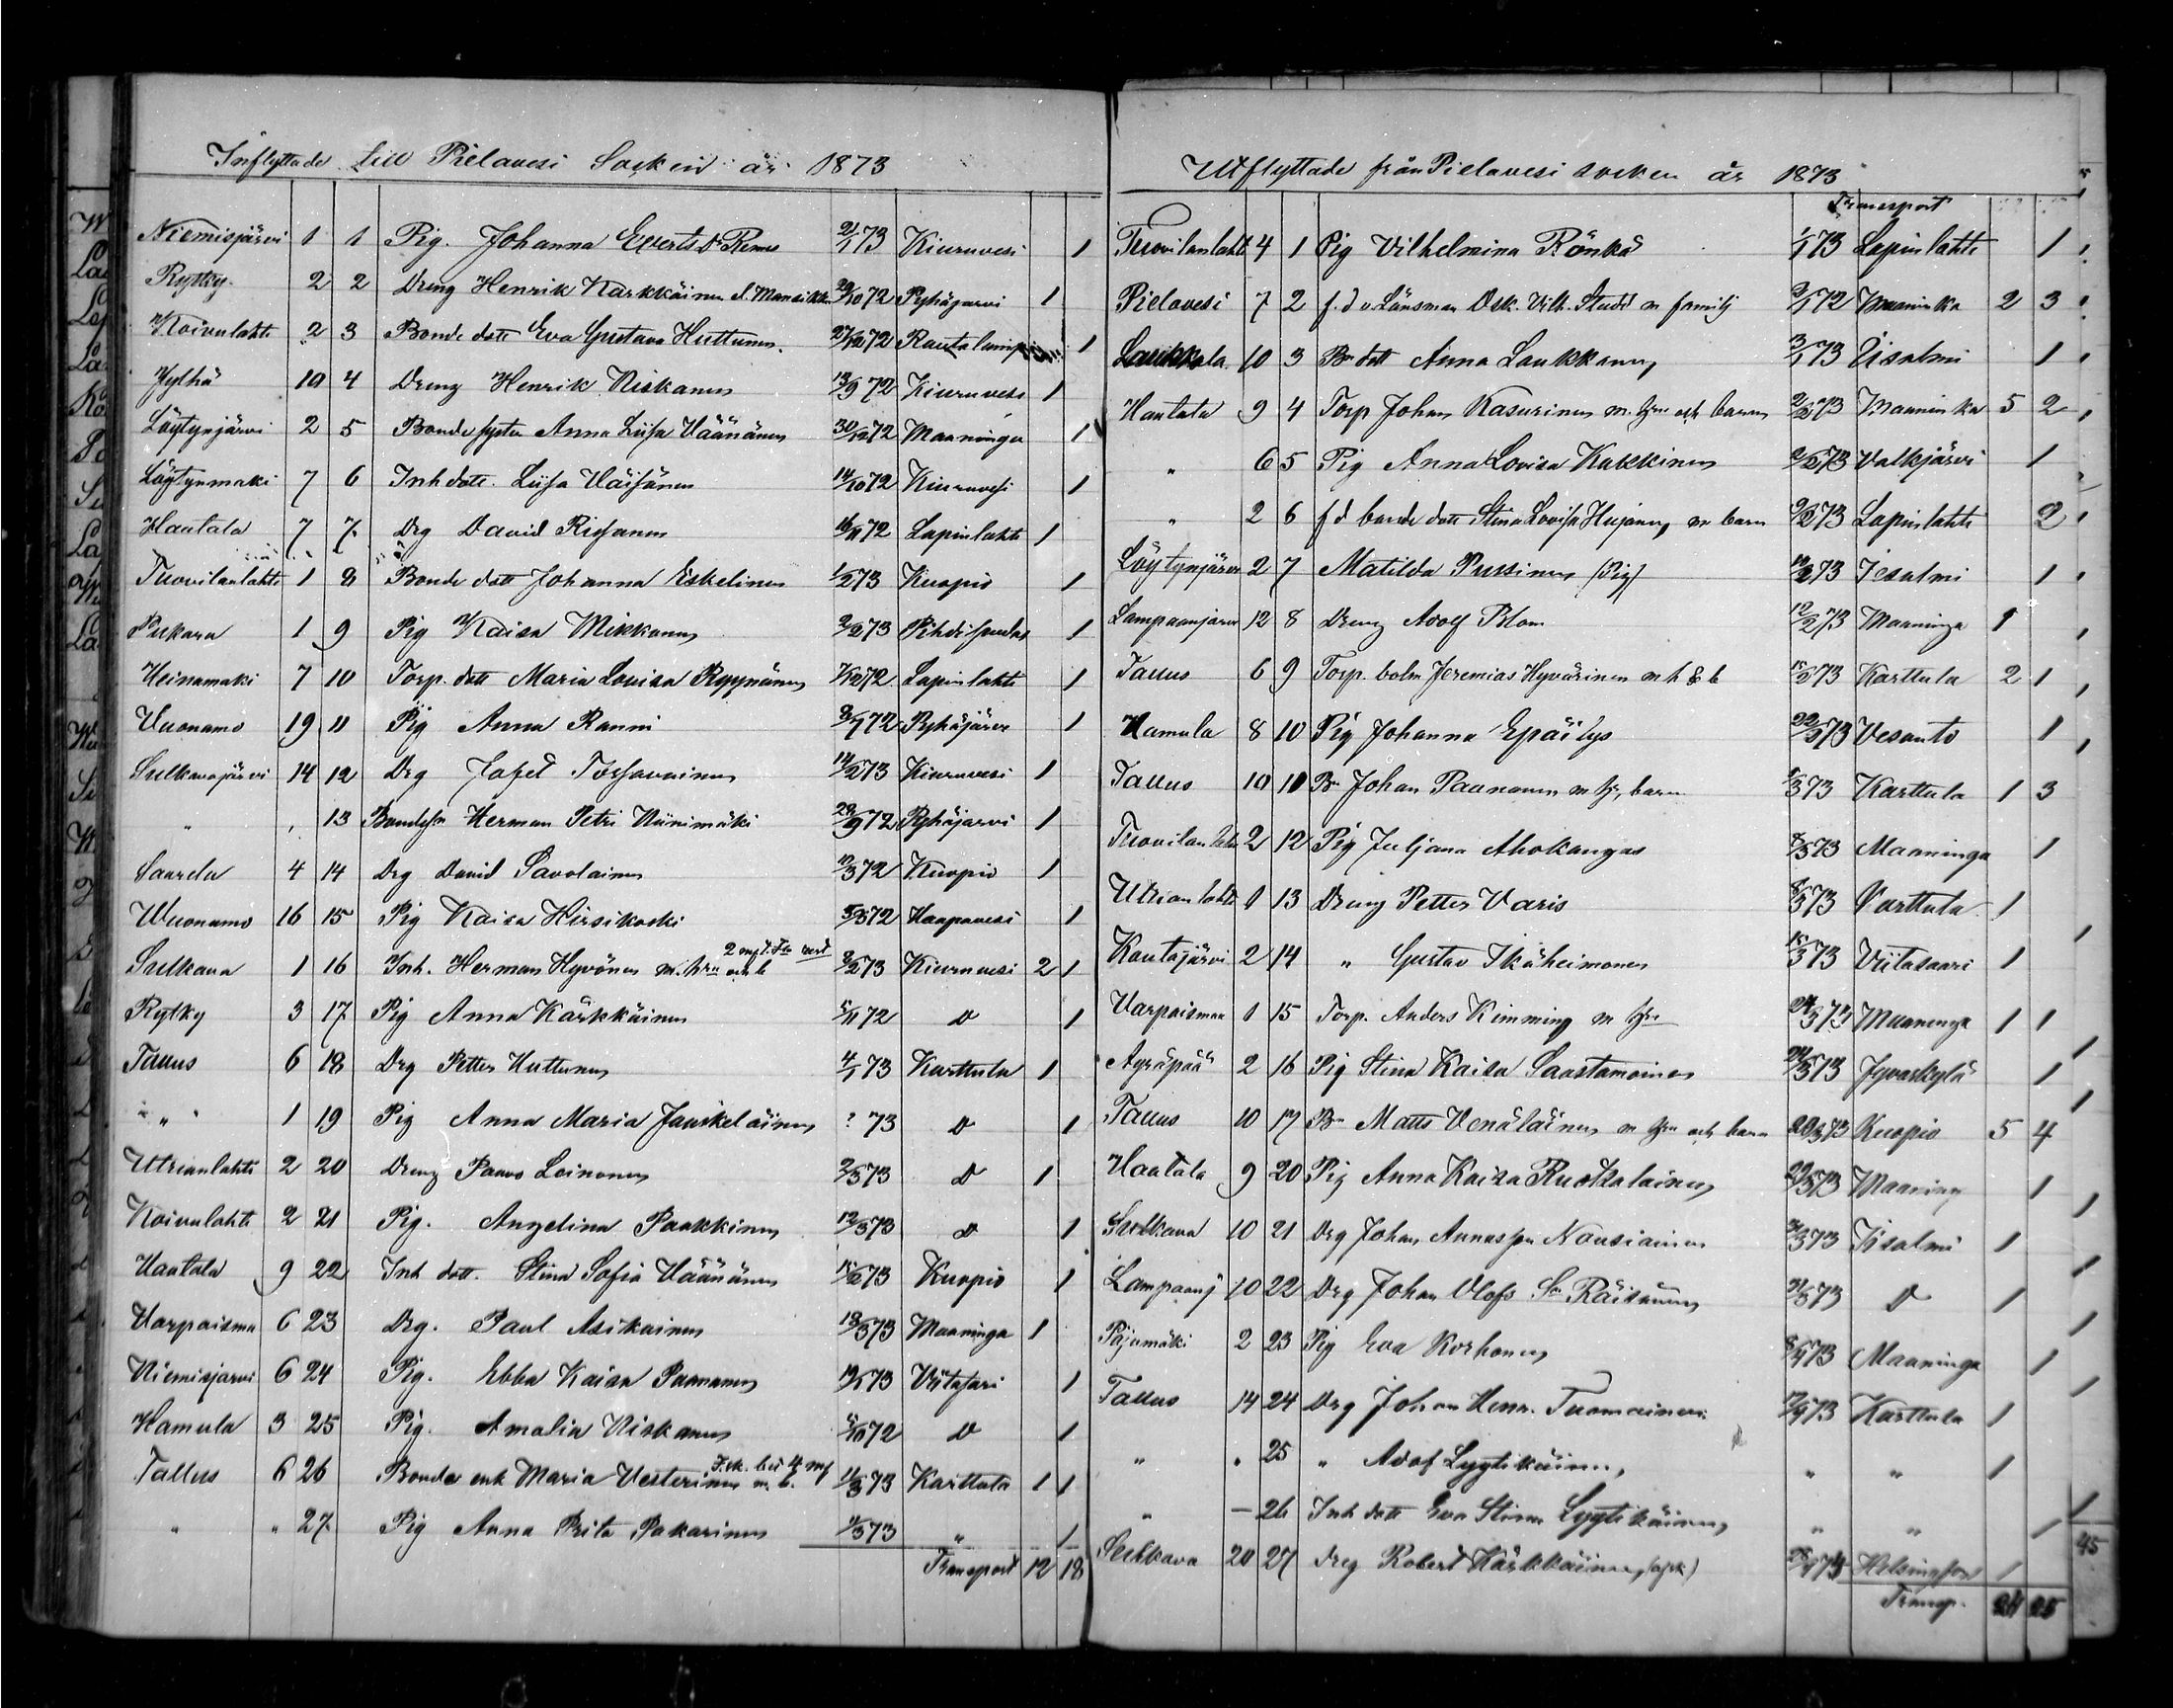 Inflyttade till Pielavesi Socken år 1873
Niemisjärvi 1 1 Pig. Johanna Everts Dr 2/1 73 Kiuruvesi 1
Rytky 2 2 Dreng Henrik Karkkäinen 29/10 72 Pyhäjarvi 1
Koivulahti 2 3 Bonde dott Eva Gustava Huttunen 27/12 72 Rautalampi 1
Jylhä 10 4 Dreng Henrik Niskanen 19/9 72 Kiuruvesi 1
Löytynjärvi 2 5 Bonde syster Anna Liisa Väänänen 30/12 72 Maaninga 1
Löytynmaki 7 6 Inh dott. Liisa Väisänen 14/10 72 Kiuruvesi 1
Hautala 7 7 Drg David Rissanen 16/11 72 Lapinlahti 1
Tuovilanlahti 1 8 Bonde dott Johanna Eskelinen 1/2 73 Kuopio 1
Pukara 1 9 Pig Kaisa Mikkanen 2/2 73 Pihdispudas 1
Heinamaki 7 10 Torp. dott Maria Lovisa Ryynänen 7/12 72 Lapinlahti 1
Vuonamo 19 11 Pig Anna Ranni 8/7 72 Pyhäjärvi 1
Sulkavajärvi 14 12 Drg Jafet Tossavainen 14/2 73 Kiuruvesi 1
" " 13 Bondeson Herman Petri Niinimäki 29/9 72 Pyhäjarvi 1
Saarela 4 14 Drg David Savolainen 10/3 72 Kuopio 1
Wuonamo 16 15 Pig Kaisa Hirsikoski 5/3 72 Haapavesi 1
Sulkava 1 16 Inh. Herman Hyvönen m. hru och b 8/2 73 Kiuruvesi 2 1
Rytky 3 17 Pig Anna Kärkkäinen 5/11 72 D 1
Tallus 6 18 Drg Petter Huttunen 4/1 73 Karttula 1
" 1 19 Pig Anna Maria Jauskeläinen ? 73 D 1
Utrianlahti 2 20 Dreng Paavo Leinonen 2/3 73 D 1
Koivulahti 2 21 Pig. Angelina Paakkinen 12/3 73 D 1
Hautala 9 22 Inh dott. Stina Sofia Väänänen 15/2 73 Kuopio 1
Varpaisma 6 23 Drg. Paul Asikainen 18/3 73 Maaninga 1
Niemisjarvi 6 24 Pig. Ebba Kaisa Paananen 19/1 73 Viitasari 1
Hamula 3 25 Pig. Amalia Niskanen 5/10 72 D 1
Tallus 6 26 Bonde enk Maria Vesterinen m. b. 11/3 73 Karttula 1 1
" " 27 Pig Anna Brita Pakarinen 2/3 73 " 1
Transport 12 18
Utflyttade från Pielavesi socken år 1873
Transport
Tuovilanlahti 4 1 Pig Vilhelmina Rönkä 1/1 73 Lapinlahti 1
Pielavesi 7 2 f. d v. Länsman Osk. Vilh. m familj 2/1 72 Maaninka 2 3
Laukkala 10 3 Bn dott Anna Laukkanen 3/1 73 Iisalmi 1
Hautala 9 4 Torp Johan Kasurinen m. hru och barn 2/2 73 Maaninka 5 2
" 6 5 Pig Anna Lovisa Kukkinen 2/2 73 Valkjärvi 1
" 2 6 f d bonde dott Stina Lovisa Hujanen m barn 9/2 73 Lapinlahti 2
Löytynjärvi 2 7 Matilda Pussinen (Pig) 10/2 73 Iisalmi 1
Lampaanjarvi 12 8 Dreng Adolf Blom 12/2 73 Maaninga 1
Tallus 6 9 Torp. bolm Jeremias Hyvärinen m h & b 15/2 73 Karttula 2 1
Hamula 8 10 Pig Johanna Epäilys 22/2 73 Vesanto 1
Tallus 10 10 Bn Johan Paananen m hr, barn 1/3 73 Karttula 1 3
Tuovilanlahti 2 12 Pig Juljana Ahokangas 8/3 73 Maaninga 1
Utrianlahti 1 13 Dreng Petter Varis 8/3 73 Karttula 1
Kautajärvi 2 14 " Gustav Ikäheimonen 15/3 73 Viitasaari 1
Varpaismaa 1 15 Torp. Anders Kimming m hru 24/3 73 Maaninga 1 1
Ayräpää 2 16 Pig Stina Kaisa Saastamoinen 24/3 73 Jyvaskylä 1
Tallus 10 17 Bn Matts Venäläinen m hru och barn 29/3 73 Kuopio 5 4
Hautala 9 20 Pig Anna Kaisa Ruotsalainen 29/3 73 Maaning 1
Sulkava 10 21 Drg Johan Annasson Nousiainen 31/3 73 Iisalmi 1
Lampaanj 10 22 Drg Johan Olofs Sn Räisänen 31/3 73 D 1
Pajumäki 2 23 Pig Eva Korhonen 8/4 73 Maaninga 1
Tallus 14 24 Drg Johan Henr. Tuomainen 17/4 73 Karttula 1
" " 25 " Adof Lyytikäinen " " 1
" — 26 Inh dott Eva Stina Lyytikäinen " " 1
Sulkava 20 27 Dreg Robert Kärkkäinen 73 Helsingfors 1
Transp. 24 25
45